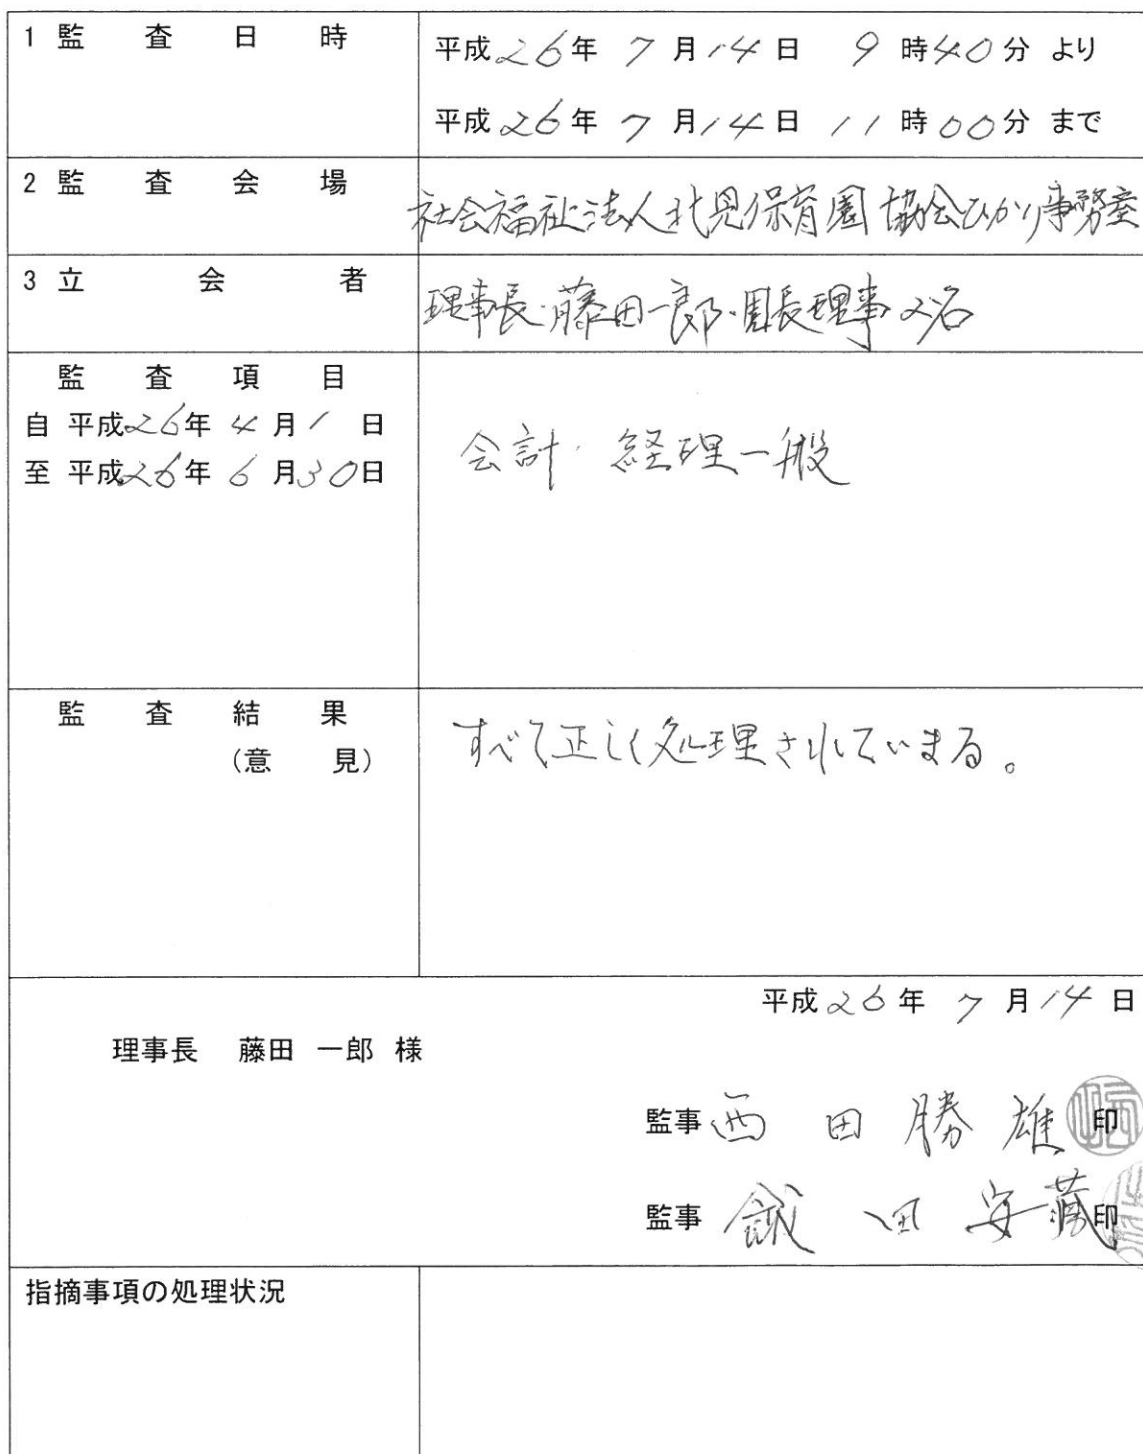 1 監査日時
平成26年 7月14日 9時40分 より
平成26年 7月14日 11時00分 まで
2 監査会場
社会福祉法人北見保育園協会ひかり事務室
3 立会者
理事長・藤田一郎・園長理事2名
監査項目
自 平成26年 4月1日
至 平成26年 6月30日
会計・経理一般
監査結果
(意見)
すべて正しく処理されていまる。
平成26年 7月14日
理事長 藤田 一郎 様
監事 西田勝雄 印
監事 田安蔵 印
指摘事項の処理状況